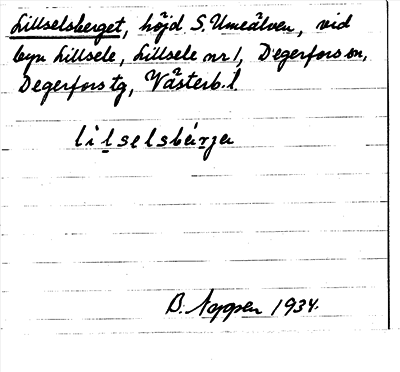 Lillselsberget, höjd S. Umeälven, vid
byn Lillsele, Lillsele nr 1, Degerfors sn,
Degerfors tg, Västerb. l.
lilselsbärja
B. Noppen 1934.